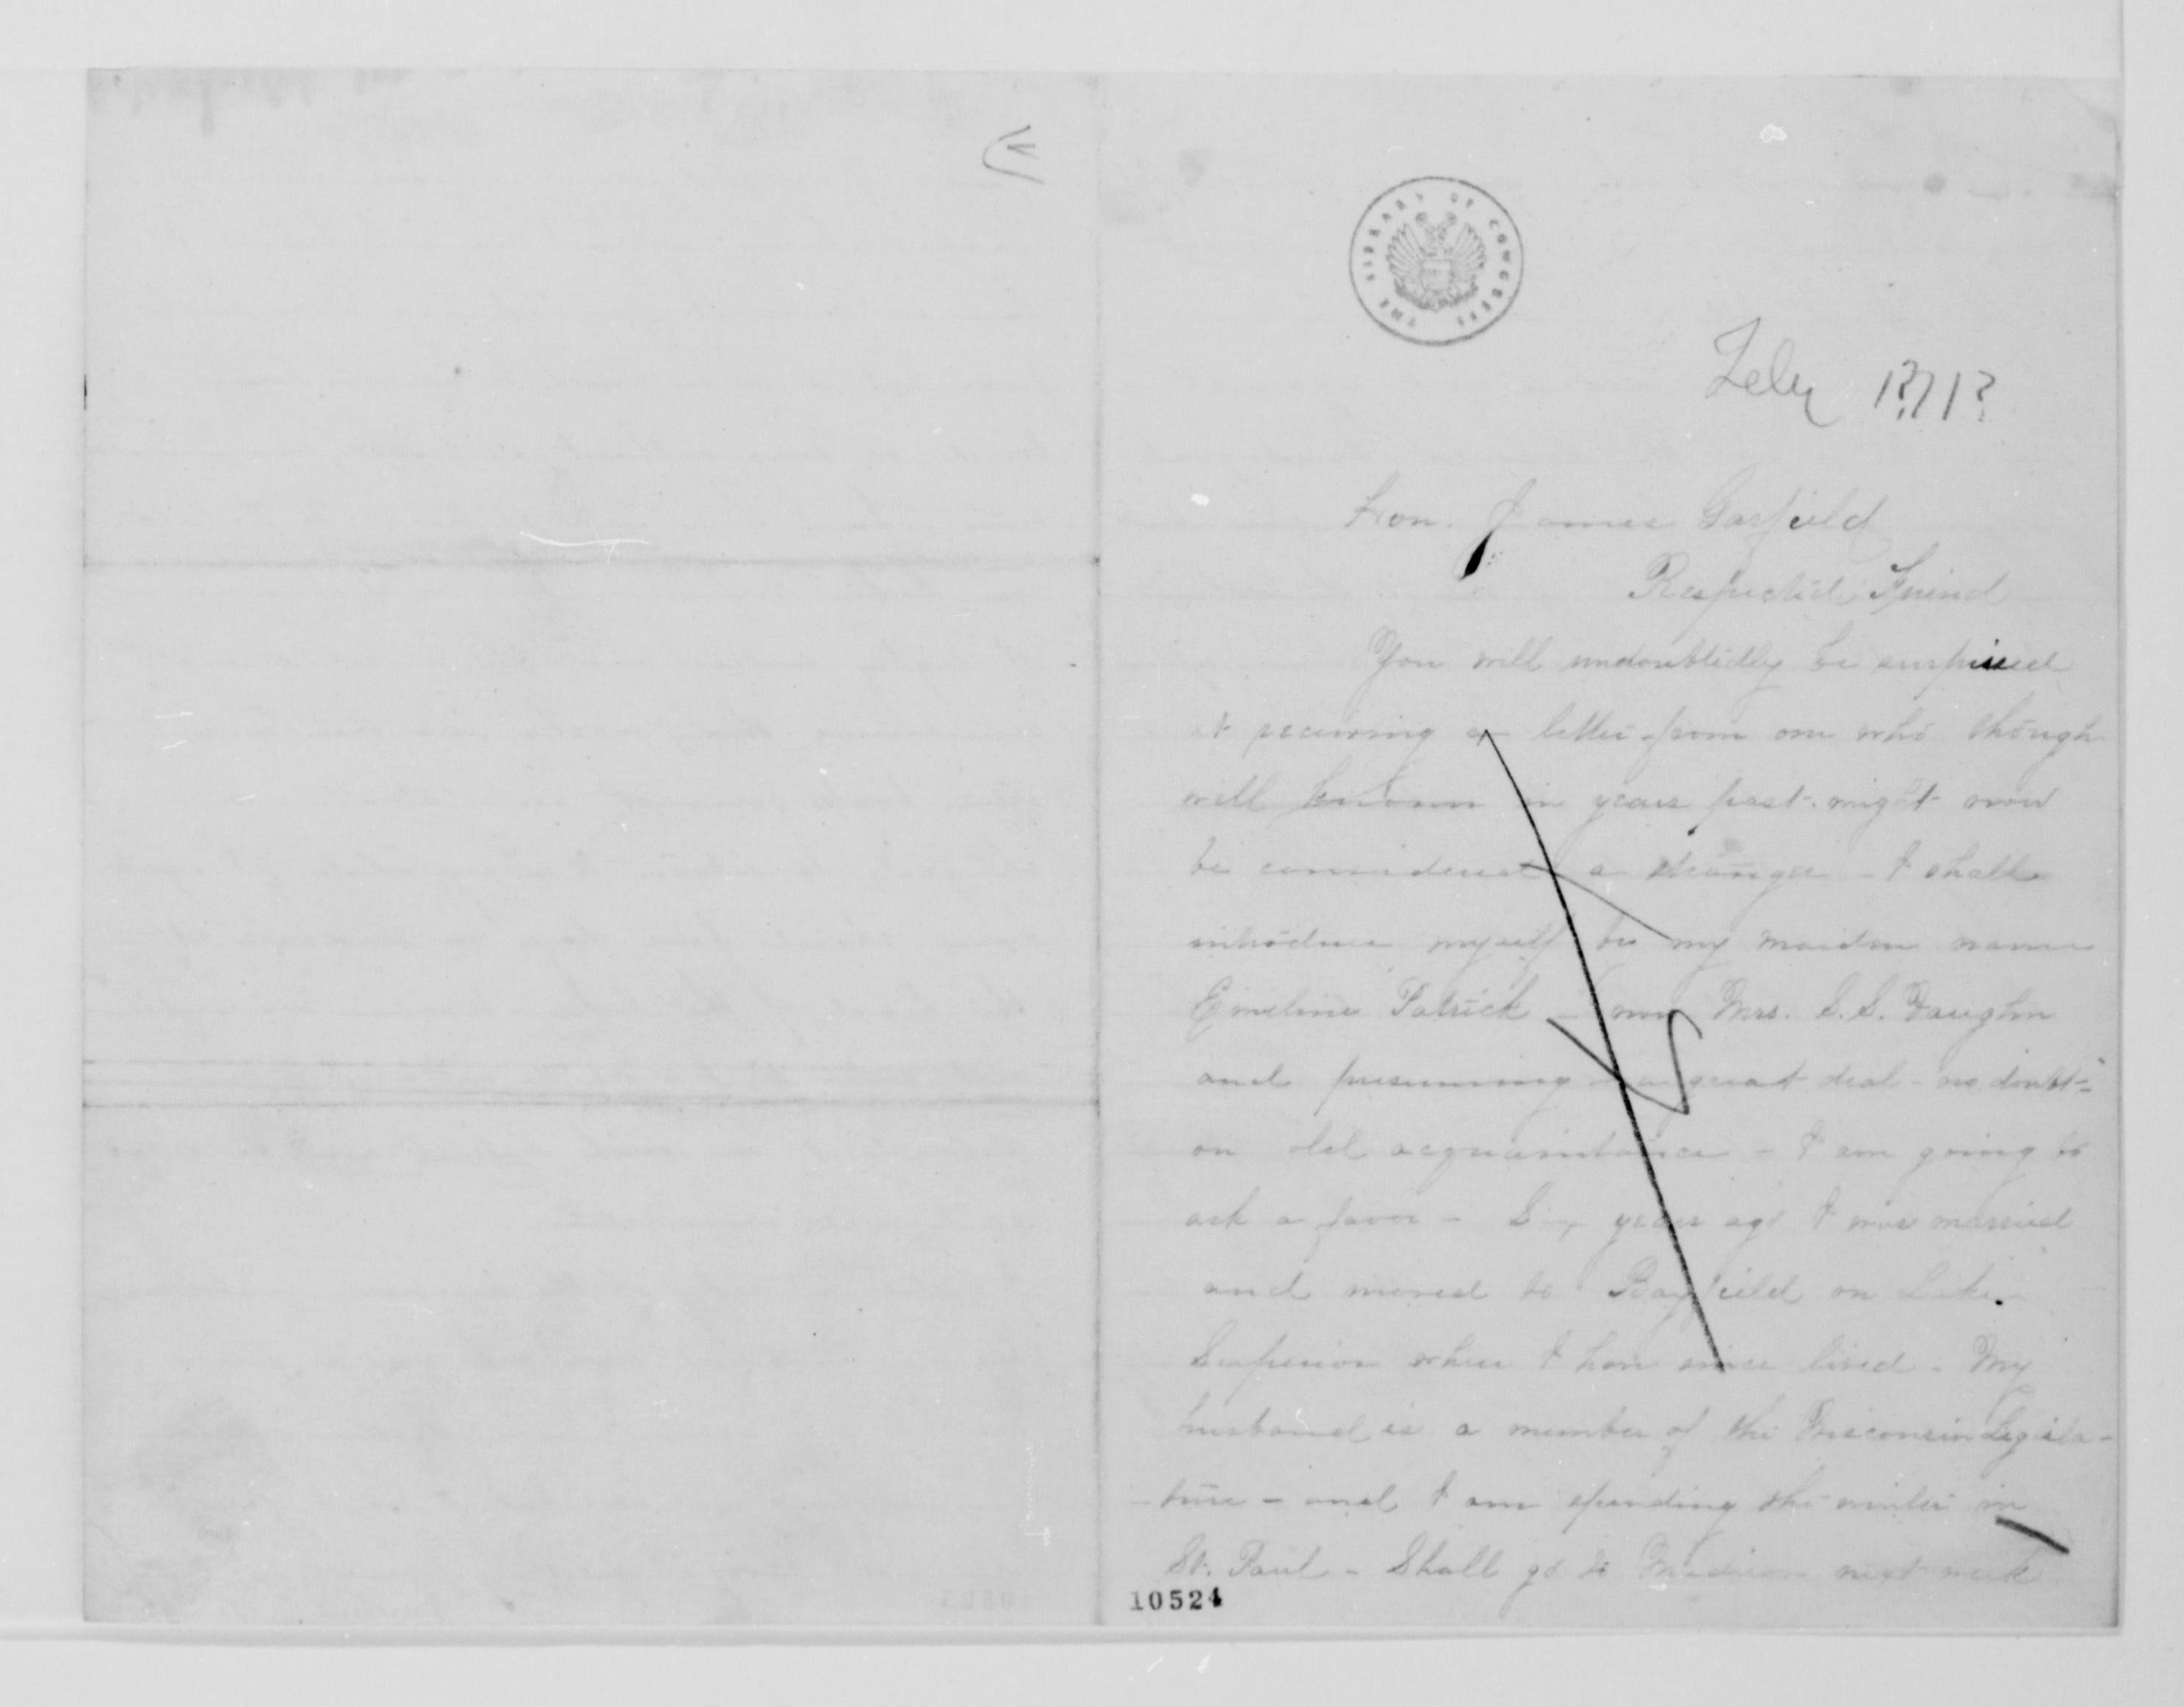 THE LIBRARY OF CONGRESS
Feby 1871?
Hon. James Garfield
Respected Friend
You will undoubtedly be surprised
at receiving a letter from one who though
well known in years past might now
be considered a stranger - I shall
introduce myself by my maiden name
Emeline Patrick - now Mrs. S. S. Vaughn
and presuming a great deal - no doubt -
on old acquaintance - I am going to
ask a favor - Six years ago I was married
and moved to Bayfield on Lake
Superior where I have since lived - My
husband is a member of the Wisconsin Legisla-
-ture - and I am spending the winter in
St. Paul - Shall go to Madison next week
10524